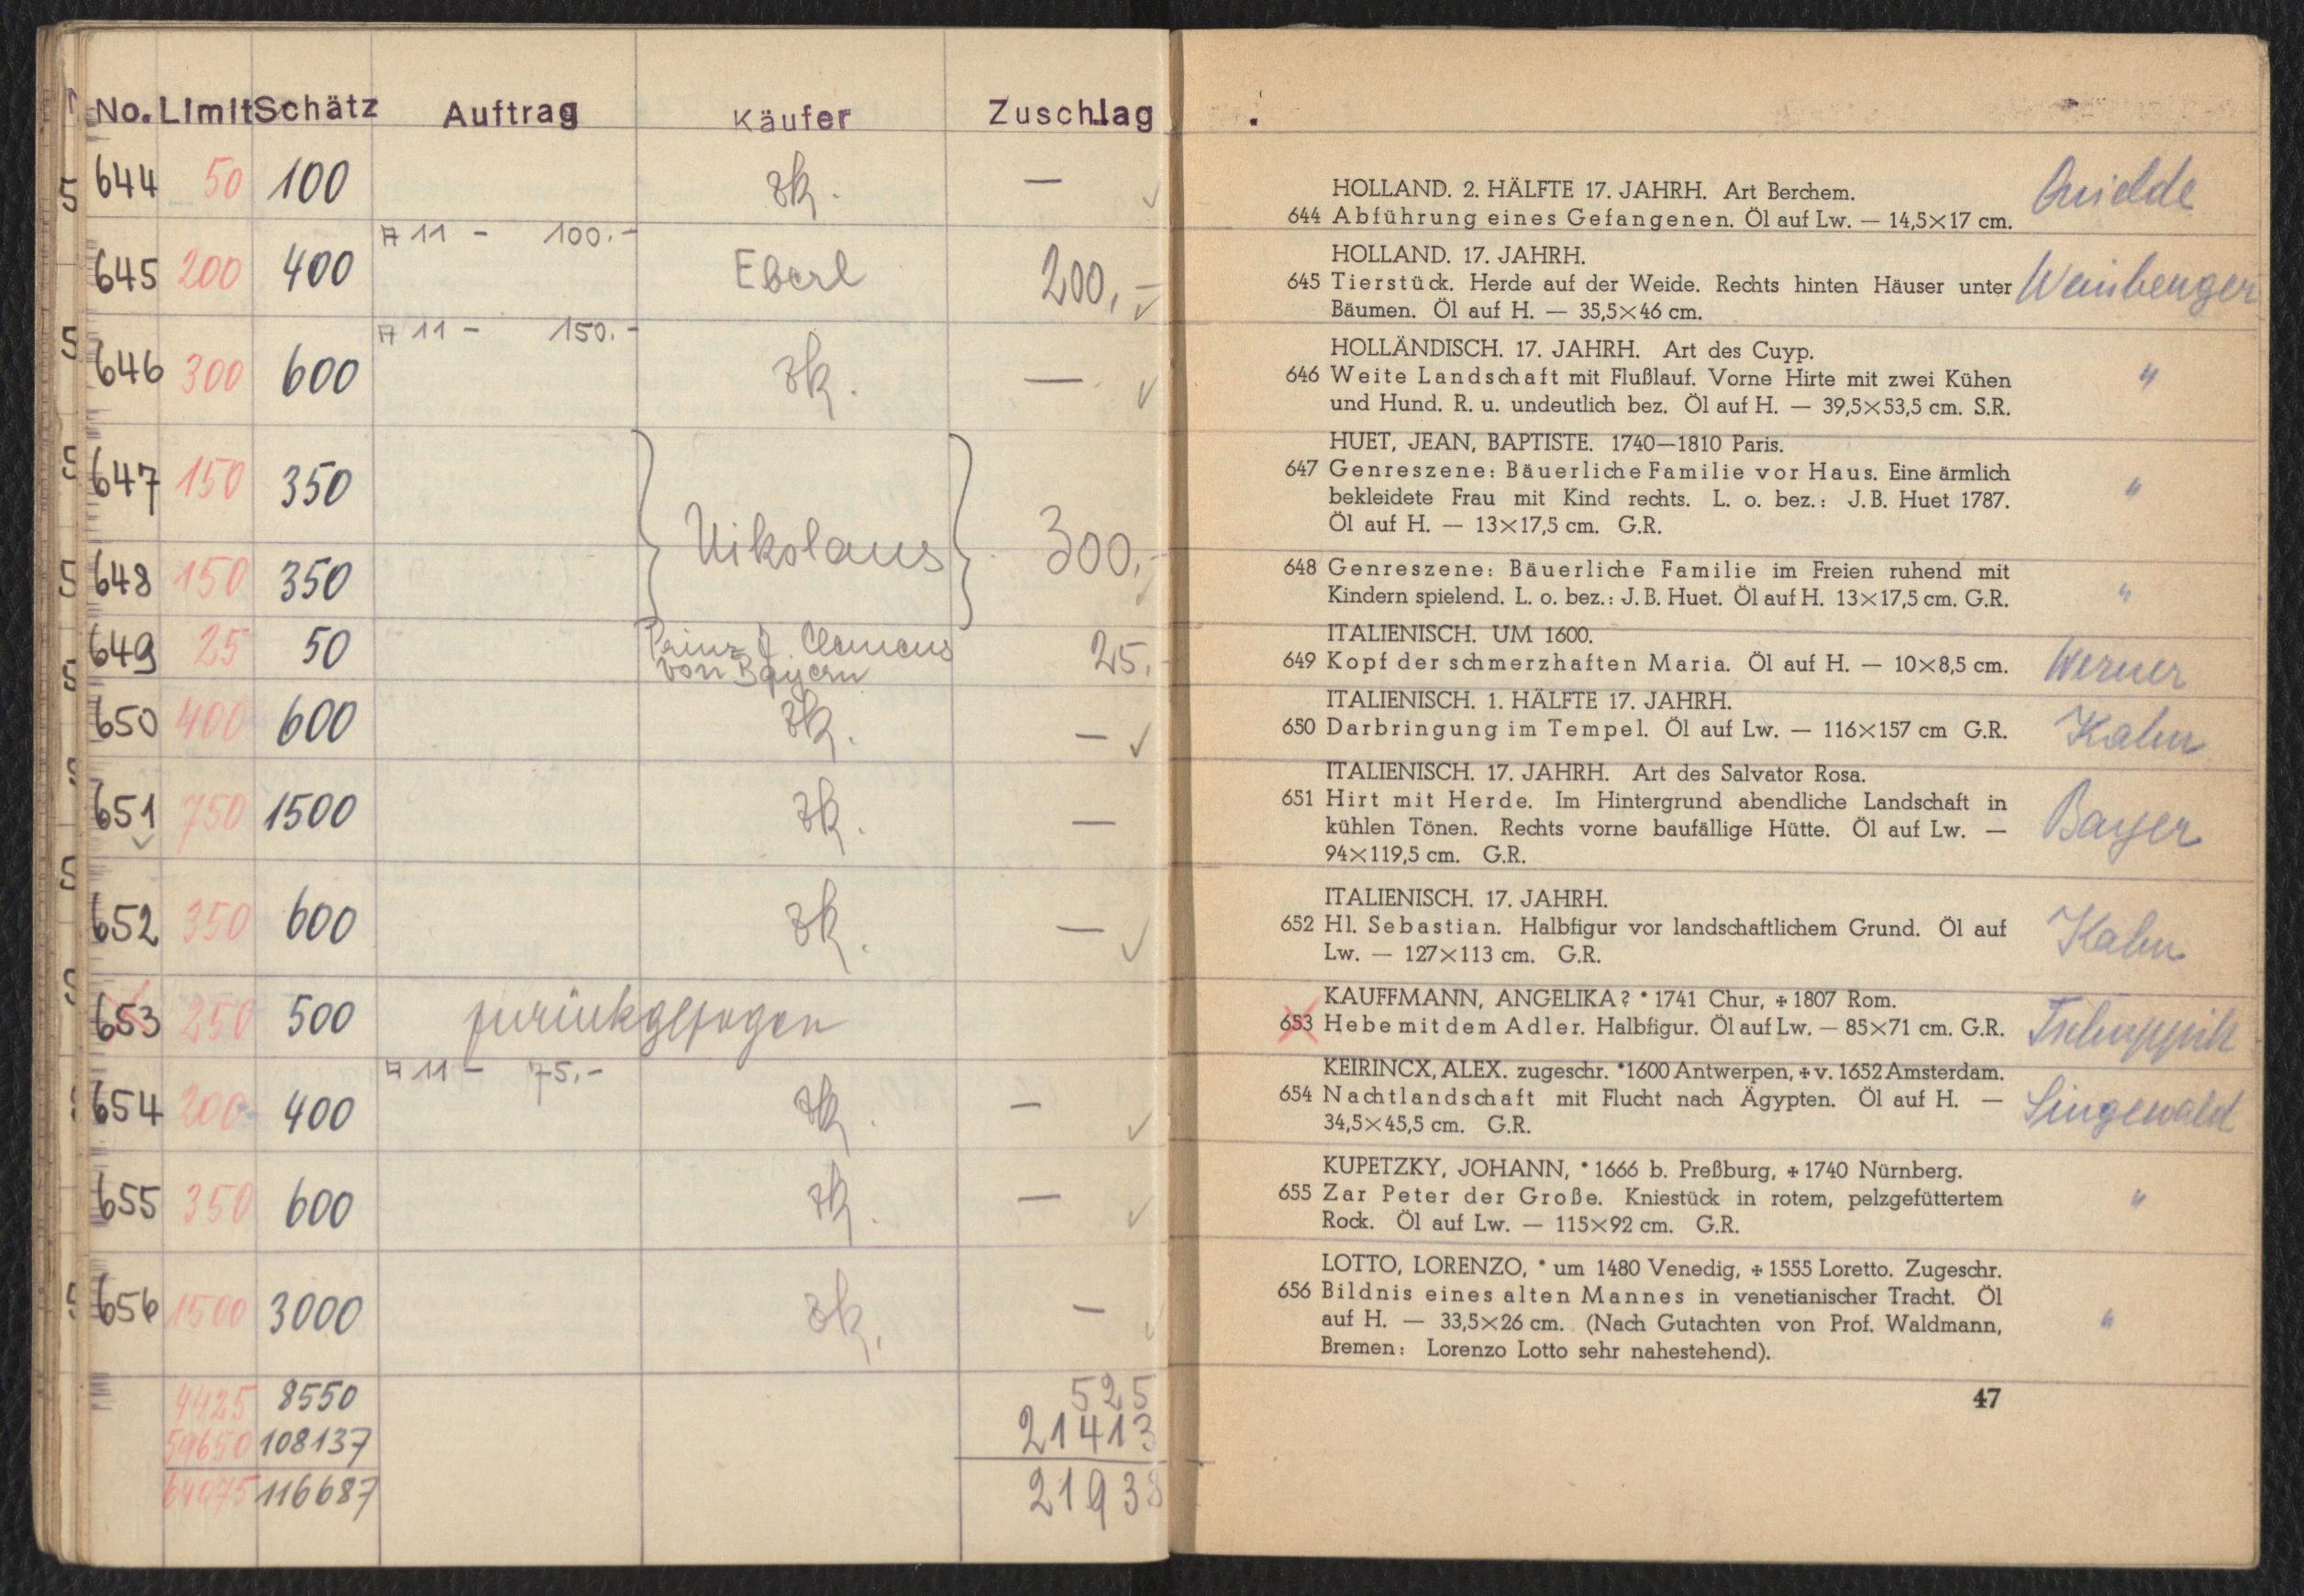 No. Limit Schätz Auftrag Käufer Zuschlag
644 50 100 zk. —
11 - 100.-
645 200 400 Eberl 200,-
11 - 150.-
646 300 600 zk. —
647 150 350
Nikolaus 300,-
648 150 350
649 25 50 Prinz J. Clemens 25.-
von Bayern
650 400 600 zk. —
651 750 1500 zk. —
652 350 600 zk. —
653 250 500 zurückgezogen
11 - 75,-
654 200 400 zk. —
655 350 600 zk. —
656 1500 3000 zk. —
4425 8550 525
108137 21413
116687 21938
HOLLAND. 2. HÄLFTE 17. JAHRH. Art Berchem. Quidde
644 Abführung eines Gefangenen. Öl auf Lw. — 14,5×17 cm.
HOLLAND. 17. JAHRH.
645 Tierstück. Herde auf der Weide. Rechts hinten Häuser unter Weinberger
Bäumen. Öl auf H. — 35,5×46 cm.
HOLLÄNDISCH. 17. JAHRH. Art des Cuyp.
646 Weite Landschaft mit Flußlauf. Vorne Hirte mit zwei Kühen "
und Hund. R. u. undeutlich bez. Öl auf H. — 39,5×53,5 cm. S.R.
HUET, JEAN, BAPTISTE. 1740—1810 Paris.
647 Genreszene: Bäuerliche Familie vor Haus. Eine ärmlich
bekleidete Frau mit Kind rechts. L. o. bez.: J. B. Huet 1787. "
Öl auf H. — 13×17,5 cm. G.R.
648 Genreszene: Bäuerliche Familie im Freien ruhend mit
Kindern spielend. L. o. bez.: J. B. Huet. Öl auf H. 13×17,5 cm. G.R. "
ITALIENISCH. UM 1600.
649 Kopf der schmerzhaften Maria. Öl auf H. — 10×8,5 cm. Werner
ITALIENISCH. 1. HÄLFTE 17. JAHRH.
650 Darbringung im Tempel. Öl auf Lw. — 116×157 cm G.R. Kahn
ITALIENISCH. 17. JAHRH. Art des Salvator Rosa.
651 Hirt mit Herde. Im Hintergrund abendliche Landschaft in
kühlen Tönen. Rechts vorne baufällige Hütte. Öl auf Lw. — Bayer
94×119,5 cm. G.R.
ITALIENISCH. 17. JAHRH.
652 Hl. Sebastian. Halbfigur vor landschaftlichem Grund. Öl auf Kahn
Lw. — 127×113 cm. G.R.
KAUFFMANN, ANGELIKA? * 1741 Chur, + 1807 Rom.
653 Hebe mit dem Adler. Halbfigur. Öl auf Lw. — 85×71 cm. G.R. Tschuppik
KEIRINCX, ALEX. zugeschr. *1600 Antwerpen, + v. 1652 Amsterdam.
654 Nachtlandschaft mit Flucht nach Ägypten. Öl auf H. — Singewald
34,5×45,5 cm. G.R.
KUPETZKY, JOHANN, * 1666 b. Preßburg, + 1740 Nürnberg.
655 Zar Peter der Große. Kniestück in rotem, pelzgefüttertem "
Rock. Öl auf Lw. — 115×92 cm. G.R.
LOTTO, LORENZO, * um 1480 Venedig, + 1555 Loretto. Zugeschr.
656 Bildnis eines alten Mannes in venetianischer Tracht. Öl
auf H. — 33,5×26 cm. (Nach Gutachten von Prof. Waldmann, "
Bremen: Lorenzo Lotto sehr nahestehend).
47